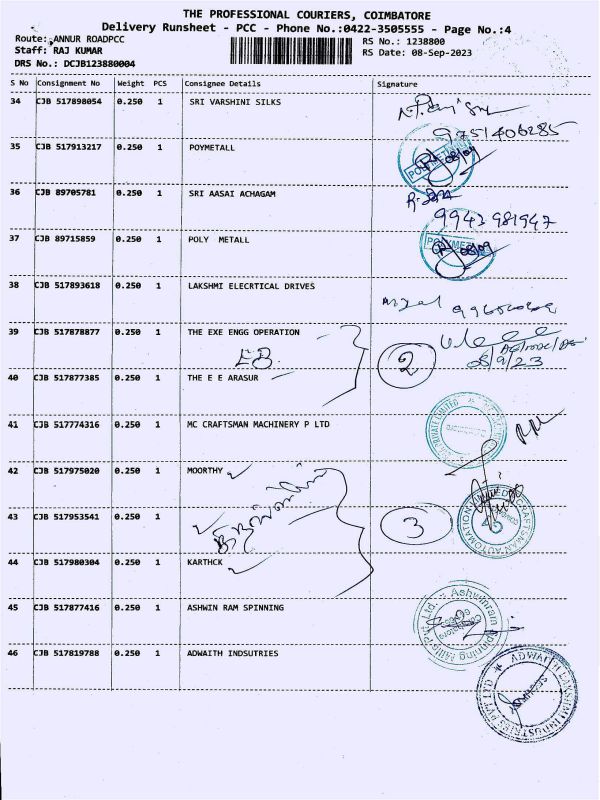 THE PROFESSIONAL COURIERS, COIMBATORE
Delivery Runsheet - PCC - Phone No.:0422-3505555 - Page No.:4
Route: ANNUR ROADPCC RS No.: 1238800
Staff: RAJ KUMAR RS Date: 08-Sep-2023
DRS No.: DCJB123880004
S No Consignment No Weight PCS Consignee Details Signature
34 CJB 517898054 0.250 1 SRI VARSHINI SILKS
9751406285
35 CJB 517913217 0.250 1 POYMETALL
36 CJB 89705781 0.250 1 SRI AASAI ACHAGAM
9942981947
37 CJB 89715859 0.250 1 POLY METALL
38 CJB 517893618 0.250 1 LAKSHMI ELECRTICAL DRIVES
39 CJB 517878877 0.250 1 THE EXE ENGG OPERATION
EB 2 28/9/23
40 CJB 517877385 0.250 1 THE E E ARASUR
41 CJB 517774316 0.250 1 MC CRAFTSMAN MACHINERY P LTD
42 CJB 517975020 0.250 1 MOORTHY
43 CJB 517953541 0.250 1 3
44 CJB 517980304 0.250 1 KARTHCK
45 CJB 517877416 0.250 1 ASHWIN RAM SPINNING
Ashwinram Spinning Mills Pvt. Ltd.
46 CJB 517819788 0.250 1 ADWAITH INDSUTRIES
ADWAITH LAKSHMI INDUSTRIES PVT LTD